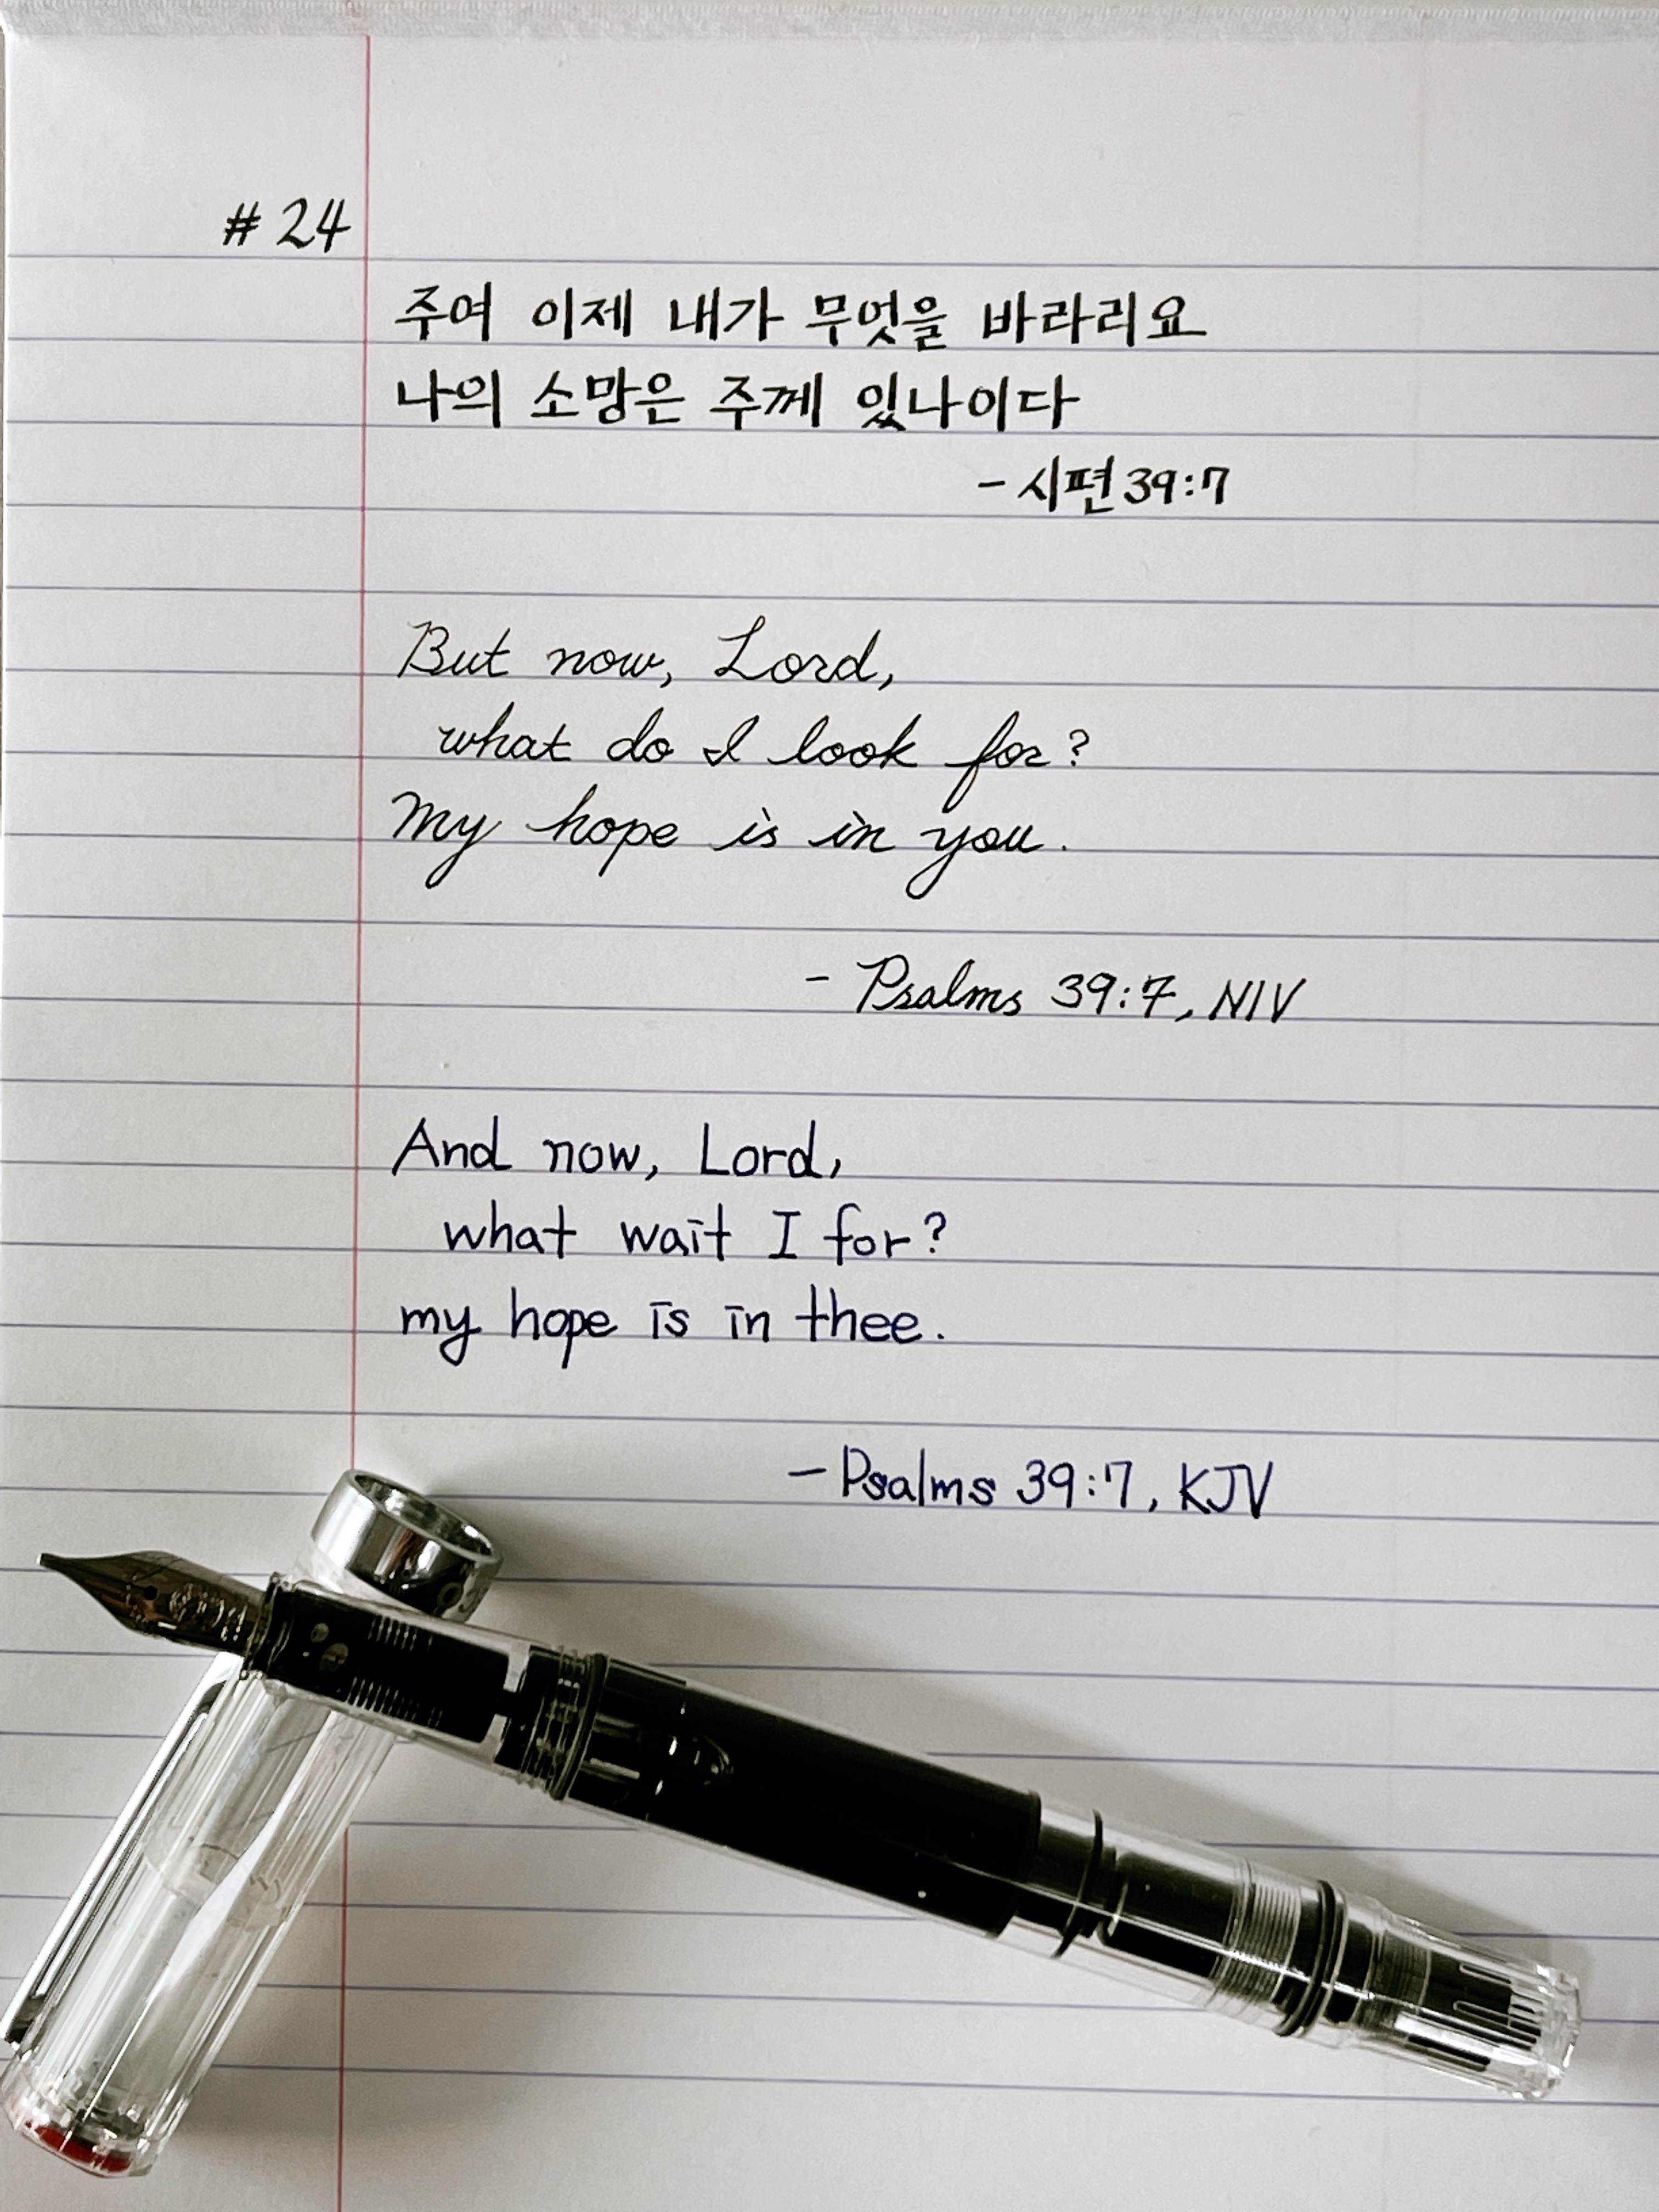 # 24
주여 이제 내가 무엇을 바라리요
나의 소망은 주께 있나이다
- 시편 39:7
But now, Lord,
what do I look for?
My hope is in you.
- Psalms 39:7, NIV
And now, Lord,
what wait I for?
my hope is in thee.
- Psalms 39:7, KJV